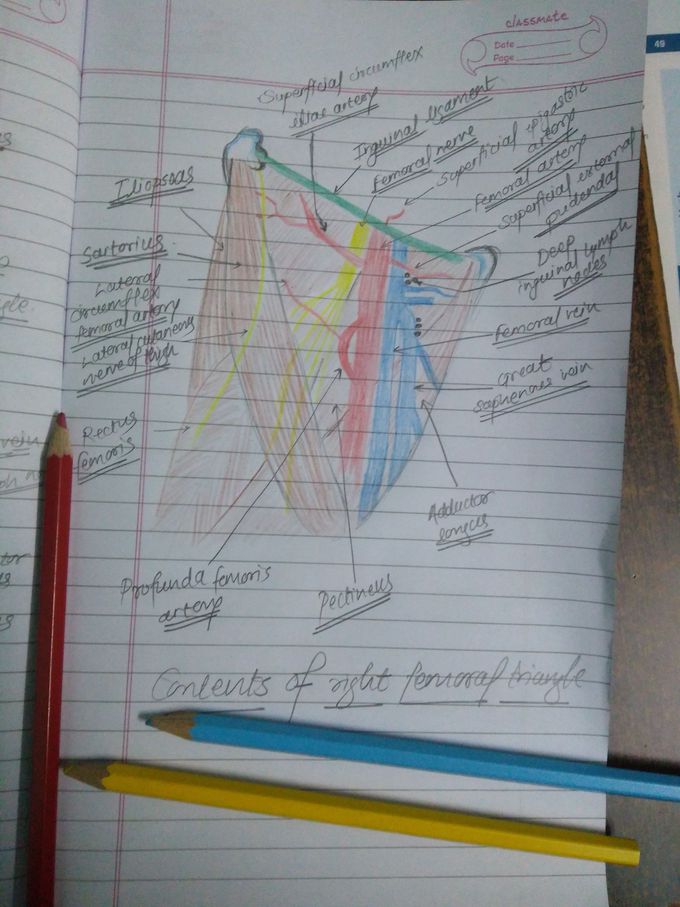 classmate
Date
Page
49
Superficial circumflex
iliac artery
Inguinal ligament
Femoral nerve
Superficial epigastric
artery
Femoral artery
Superficial external
pudendal
Deep
inguinal lymph
nodes
Femoral vein
Great
saphenous vein
Adductor
longus
Iliopsoas
Sartorius
Lateral
circumflex
femoral artery
Lateral cutaneous
nerve of thigh
Rectus
femoris
Profunda femoris
artery
Pectineus
Contents of right femoral triangle
vein